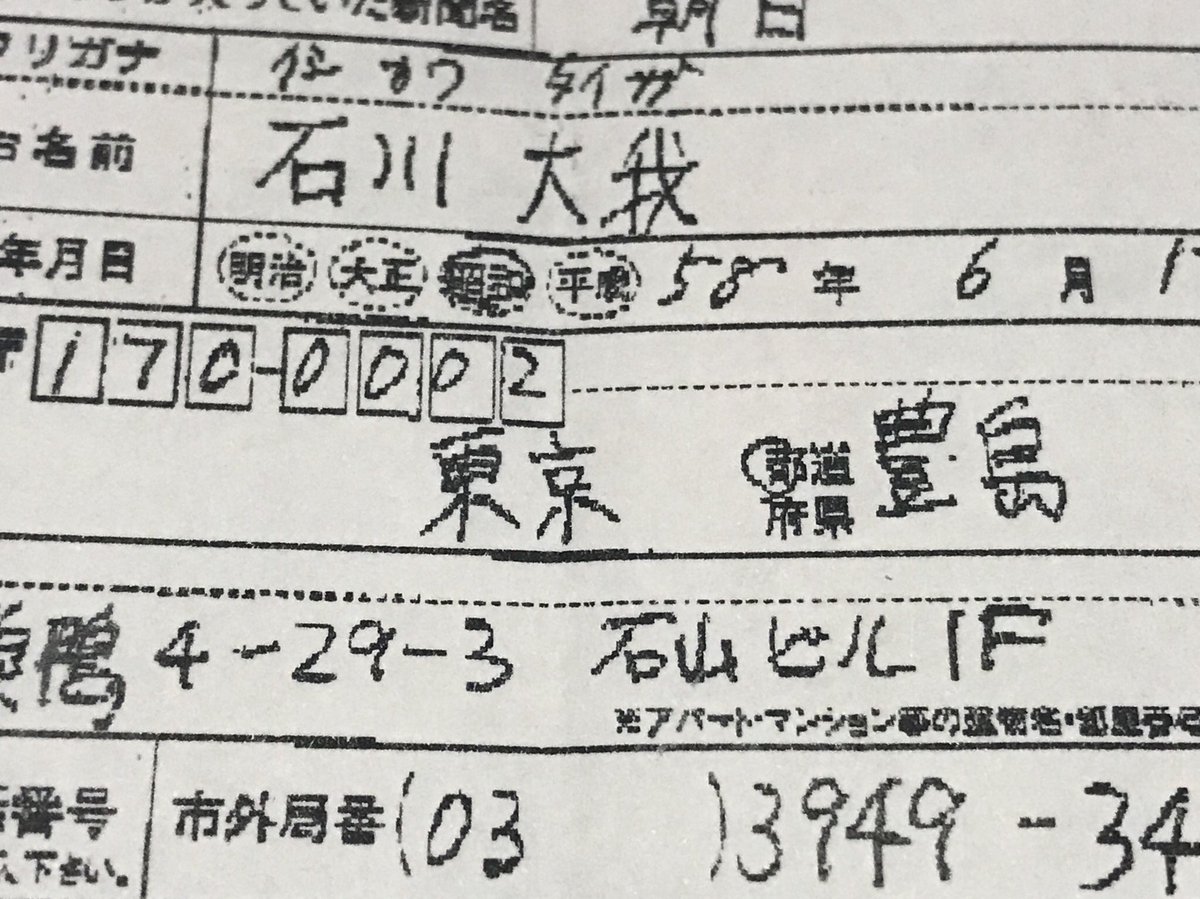 入っていた新聞名 朝日
フリガナ イシカワ タイガ
お名前 石川 大我
年月日 明治 大正 昭和 平成 58年 6月 1
〒170-0002
東京 都道府県 豊島
巣鴨 4-29-3 石山ビル1F
※アパート・マンション等の建物名・部屋番号
番号 市外局番(03)3949-34
下さい。